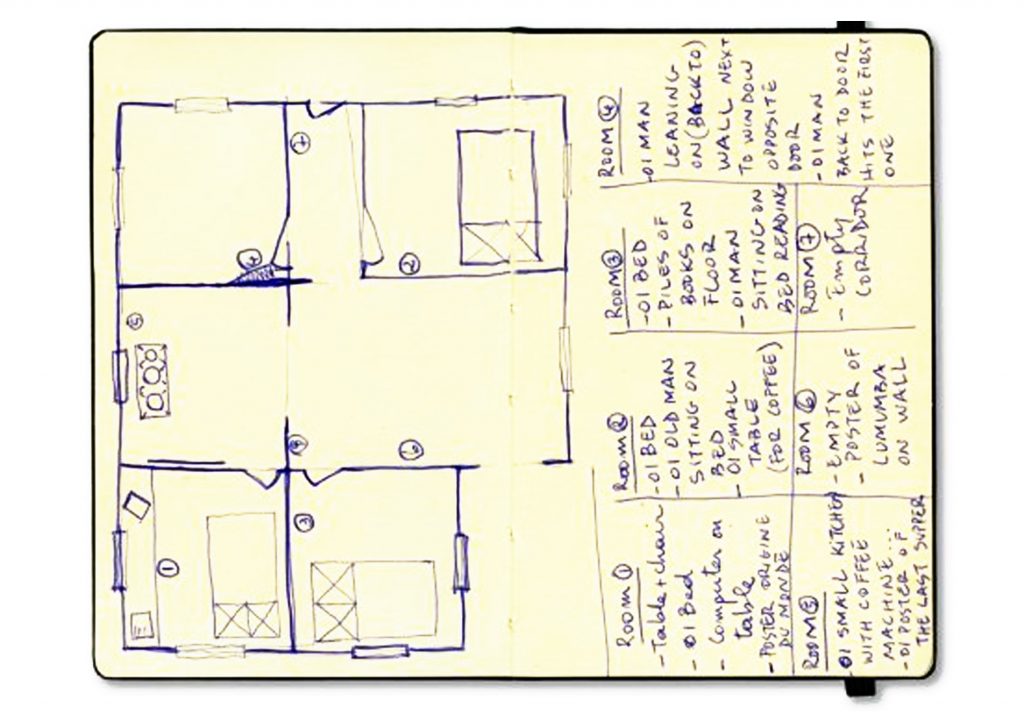 1
3
5
6
4
2
7
ROOM 1
- Table + chair
- 01 Bed
- Computer on
table
- POSTER ORIGINE
DU MONDE
ROOM 2
- 01 BED
- 01 OLD MAN
SITTING ON
BED
- 01 SMALL
TABLE
(FOR COFFEE)
ROOM 3
- 01 BED
- PILES OF
BOOKS ON
FLOOR
- 01 MAN
SITTING ON
BED READING
ROOM 4
- 01 MAN
LEANING
ON (BACK TO)
WALL NEXT
TO WINDOW
OPPOSITE
DOOR
- 01 MAN
BACK TO DOOR
HITS THE FIRST
ONE
ROOM 5
- 01 SMALL KITCHEN
WITH COFFEE
MACHINE...
- 01 POSTER OF
THE LAST SUPPER
ROOM 6
- EMPTY
- POSTER OF
LUMUMBA
ON WALL
ROOM 7
- Empty
CORRIDOR